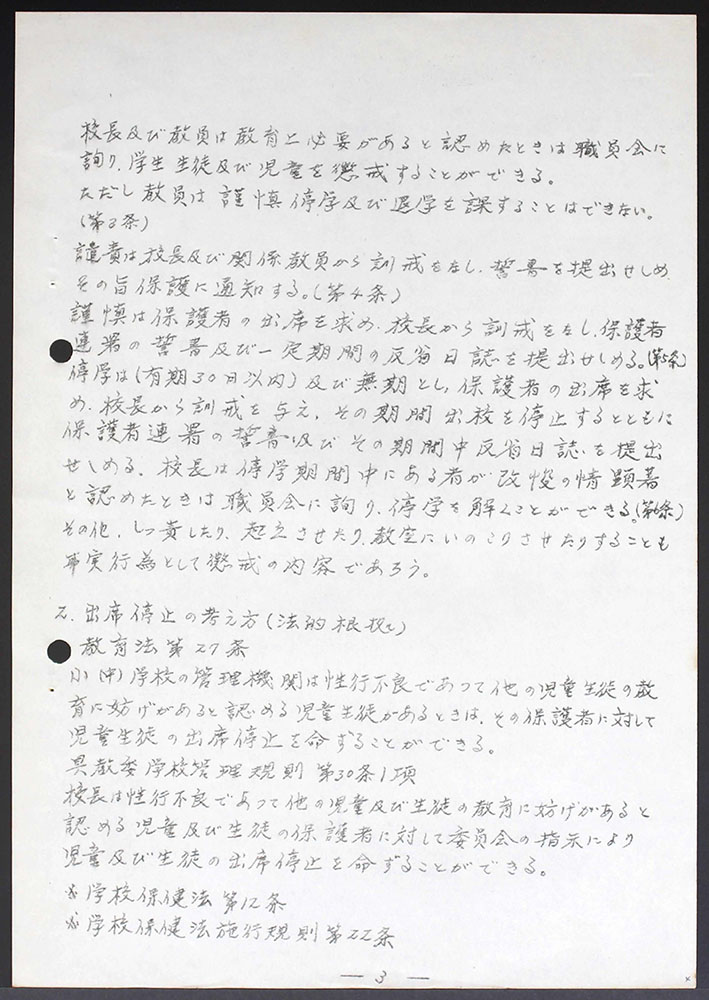 校長及び教員は教育上必要があると認めたときは職員会に
詢り、学生生徒及び児童を懲戒することができる。
ただし教員は謹慎停学及び退学を課することはできない。
(第3条)
譴責は校長及び関係教員から訓戒をなし、誓書を提出せしめ
その旨保護に通知する。(第4条)
謹慎は保護者の出席を求め、校長から訓戒をなし、保護者
連署の誓書及び一定期間の反省日誌を提出せしめる。(第5条)
停学は(有期30日以内)及び無期とし、保護者の出席を求
め、校長から訓戒を与え、その期間出校を停止するとともに
保護者連署の誓書及びその期間中反省日誌を提出
せしめる。校長は停学期間中にある者が改悛の情顕著
と認めたときは職員会に詢り、停学を解くことができる。(第6条)
その他、しっ責したり、起立させたり、教室にいのこりさせたりすることも
事実行為として懲戒の内容であろう。
2. 出席停止の考え方(法的根拠)
教育法第27条
小(中)学校の管理機関は性行不良であつて他の児童生徒の教
育に妨げがあると認める児童生徒があるときは、その保護者に対して
児童生徒の出席停止を命ずることができる。
具教委学校管理規則 第30条1項
校長は性行不良であつて他の児童及び生徒の教育に妨げがあると
認める児童及び生徒の保護者に対して委員会の指示により
児童及び生徒の出席停止を命ずることができる。
※学校保健法第12条
※学校保健法施行規則第22条
— 3 —